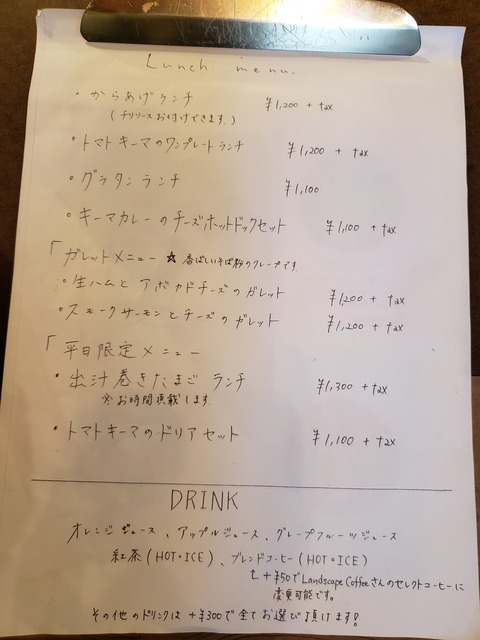 Lunch menu.
・からあげランチ ¥1,200 + tax
(チリソースお付けできます。)
・トマトキーマのワンプレートランチ ¥1,200 + tax
・グラタンランチ ¥1,100
・キーマカレーのチーズホットドックセット ¥1,100 + tax
「ガレットメニュー ☆ 香ばしいそば粉のクレープです。
・生ハムとアボカドチーズのガレット ¥1,200 + tax
・スモークサーモンとチーズのガレット ¥1,200 + tax
「平日限定メニュー
・出汁巻きたまごランチ ¥1,300 + tax
※お時間頂戴します。
・トマトキーマのドリアセット ¥1,100 + tax
DRINK
オレンジジュース、アップルジュース、グレープフルーツジュース
紅茶(HOT・ICE)、ブレンドコーヒー(HOT・ICE)
+¥50でLandscape Coffeeさんのセレクトコーヒーに
変更可能です。
その他のドリンクは+¥300で全てお選び頂けます!